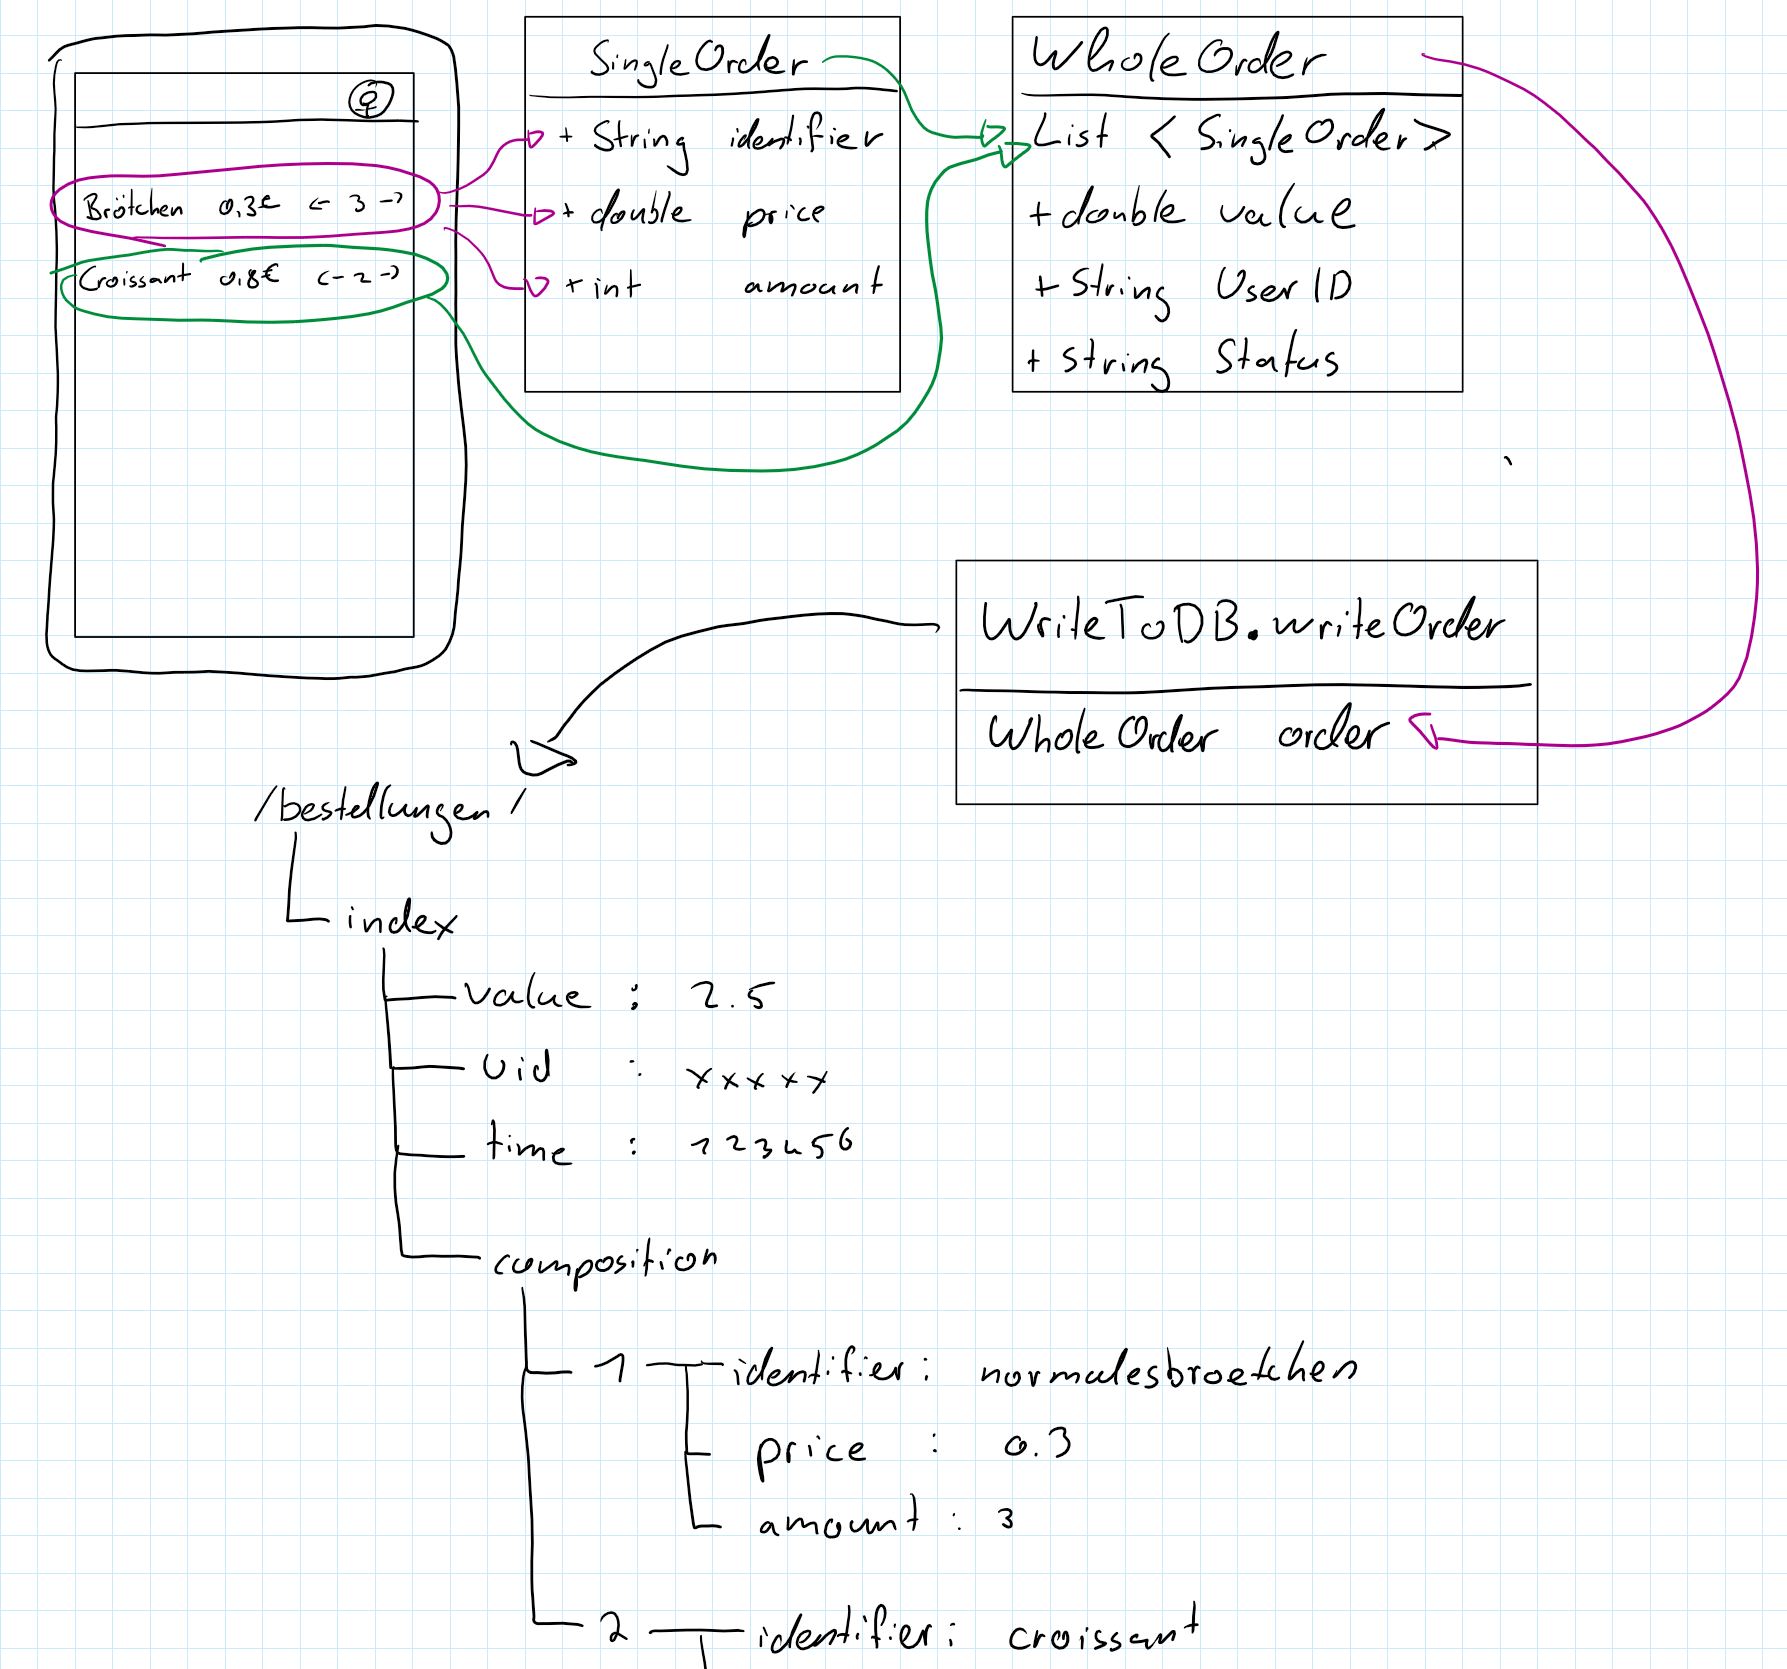 Brötchen 0,3€ <- 3 ->
Croissant 0,8€ <- 2 ->
SingleOrder
+ String identifier
+ double price
+ int amount
WholeOrder
List <SingleOrder>
+ double value
+ String UserID
+ String Status
WriteToDB.writeOrder
WholeOrder order
/bestellungen/
index
value : 2.5
Uid : xxxxx
time : 123456
composition
1 identifier: normalesbroetchen
price : 0.3
amount : 3
2 identifier: croissant